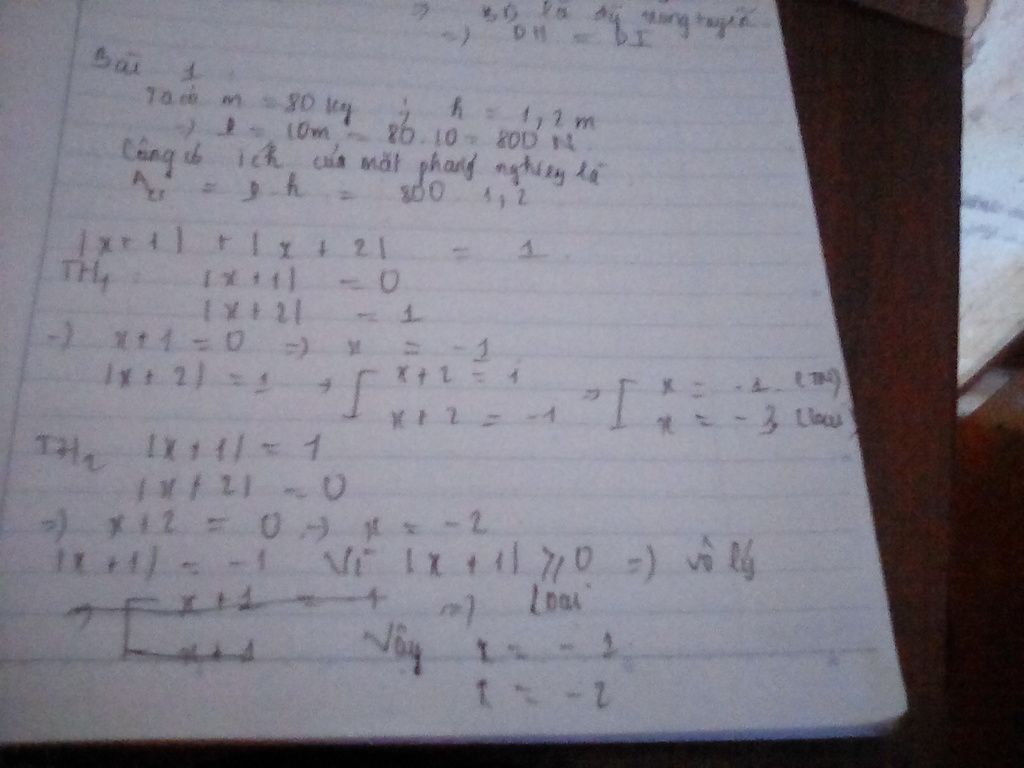 => BD là đg trung tuyến
=) DH = DI
Bài 1
Ta có m = 80 kg ; h = 1,2 m
=) P = 10m = 80.10 = 800 N.
Công có ích của mặt phẳng nghiêng là
A = P.h = 800 1,2
|x+1| + |x+2| = 1
TH1 |x+1| = 0
|x+2| = 1
=) x+1 = 0 =) x = -1
|x+2| = 1 => [ x+2 = 1 => [ x = -1 (TM)
x+2 = -1 x = -3 (loại)
TH2 |x+1| = 1
|x+2| = 0
=) x+2 = 0 =) x = -2
|x+1| = -1 Vì |x+1| ⩾ 0 =) vô lý
=> [ x+1 = 1 =) Loại
x+1 Vậy x = -1
x = -2